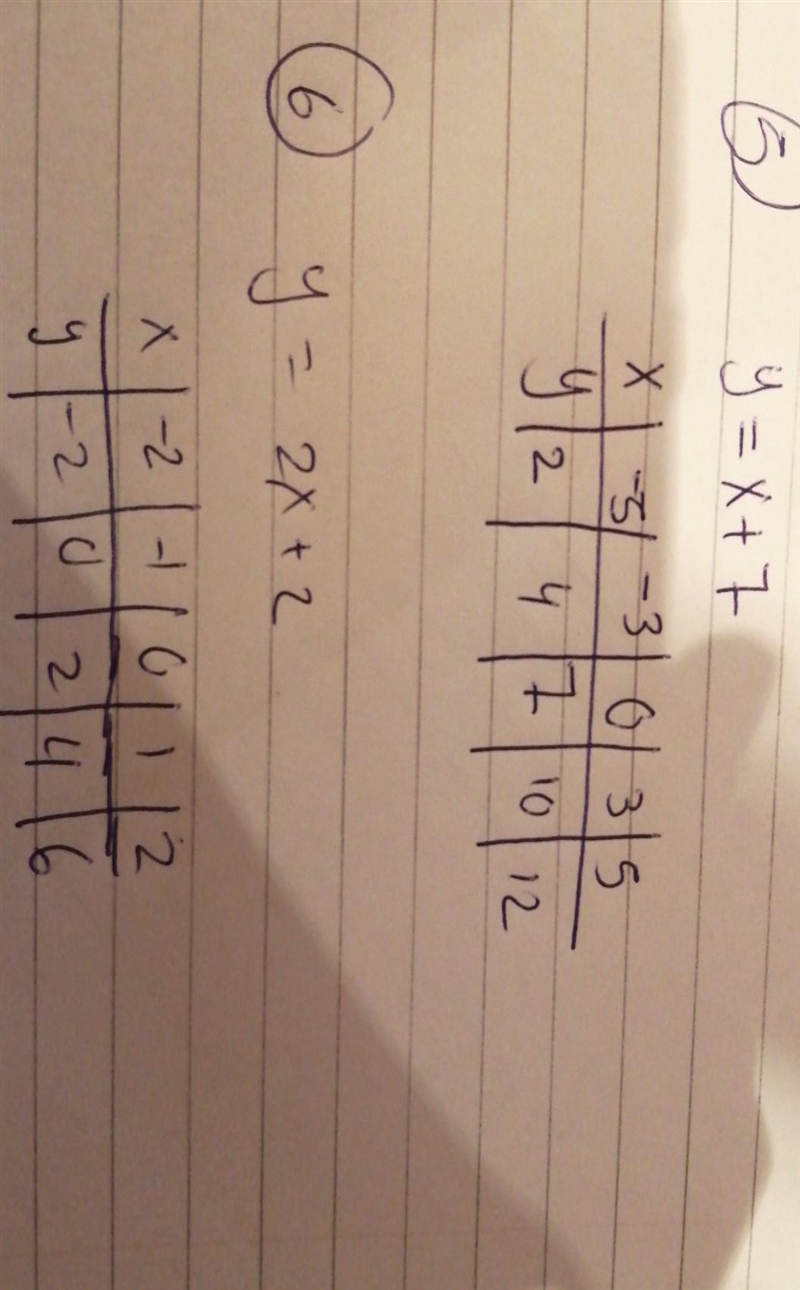 5 y = x + 7
x | -5 | -3 | 0 | 3 | 5
y | 2 | 4 | 7 | 10 | 12
6 y = 2x + 2
x | -2 | -1 | 0 | 1 | 2
y | -2 | 0 | 2 | 4 | 6